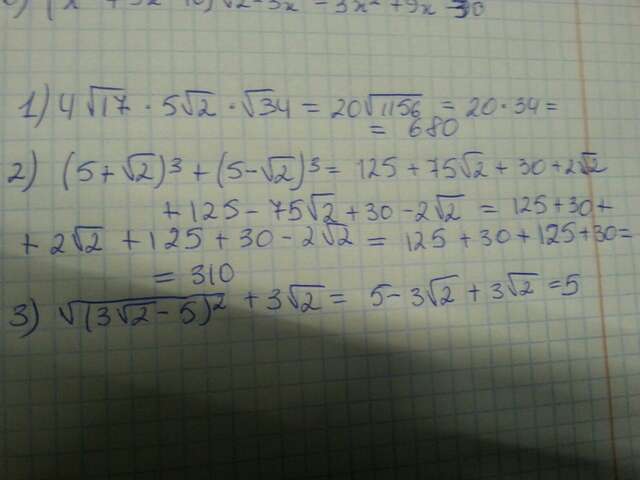 √2-3x - 3x² + 9x - 30
1) 4√17 · 5√2 · √34 = 20√1156 = 20·34 =
= 680
2) (5+√2)³ + (5-√2)³ = 125 + 75√2 + 30 + 2√2
+ 125 - 75√2 + 30 - 2√2 = 125 + 30 +
+ 2√2 + 125 + 30 - 2√2 = 125 + 30 + 125 + 30 =
= 310
3) √(3√2 - 5)² + 3√2 = 5 - 3√2 + 3√2 = 5